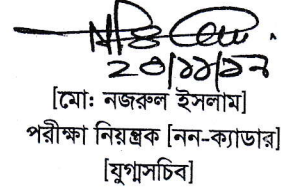 ২০/১১/১৭
[মো: নজরুল ইসলাম]
পরীক্ষা নিয়ন্ত্রক [নন-ক্যাডার]
[যুগ্মসচিব]